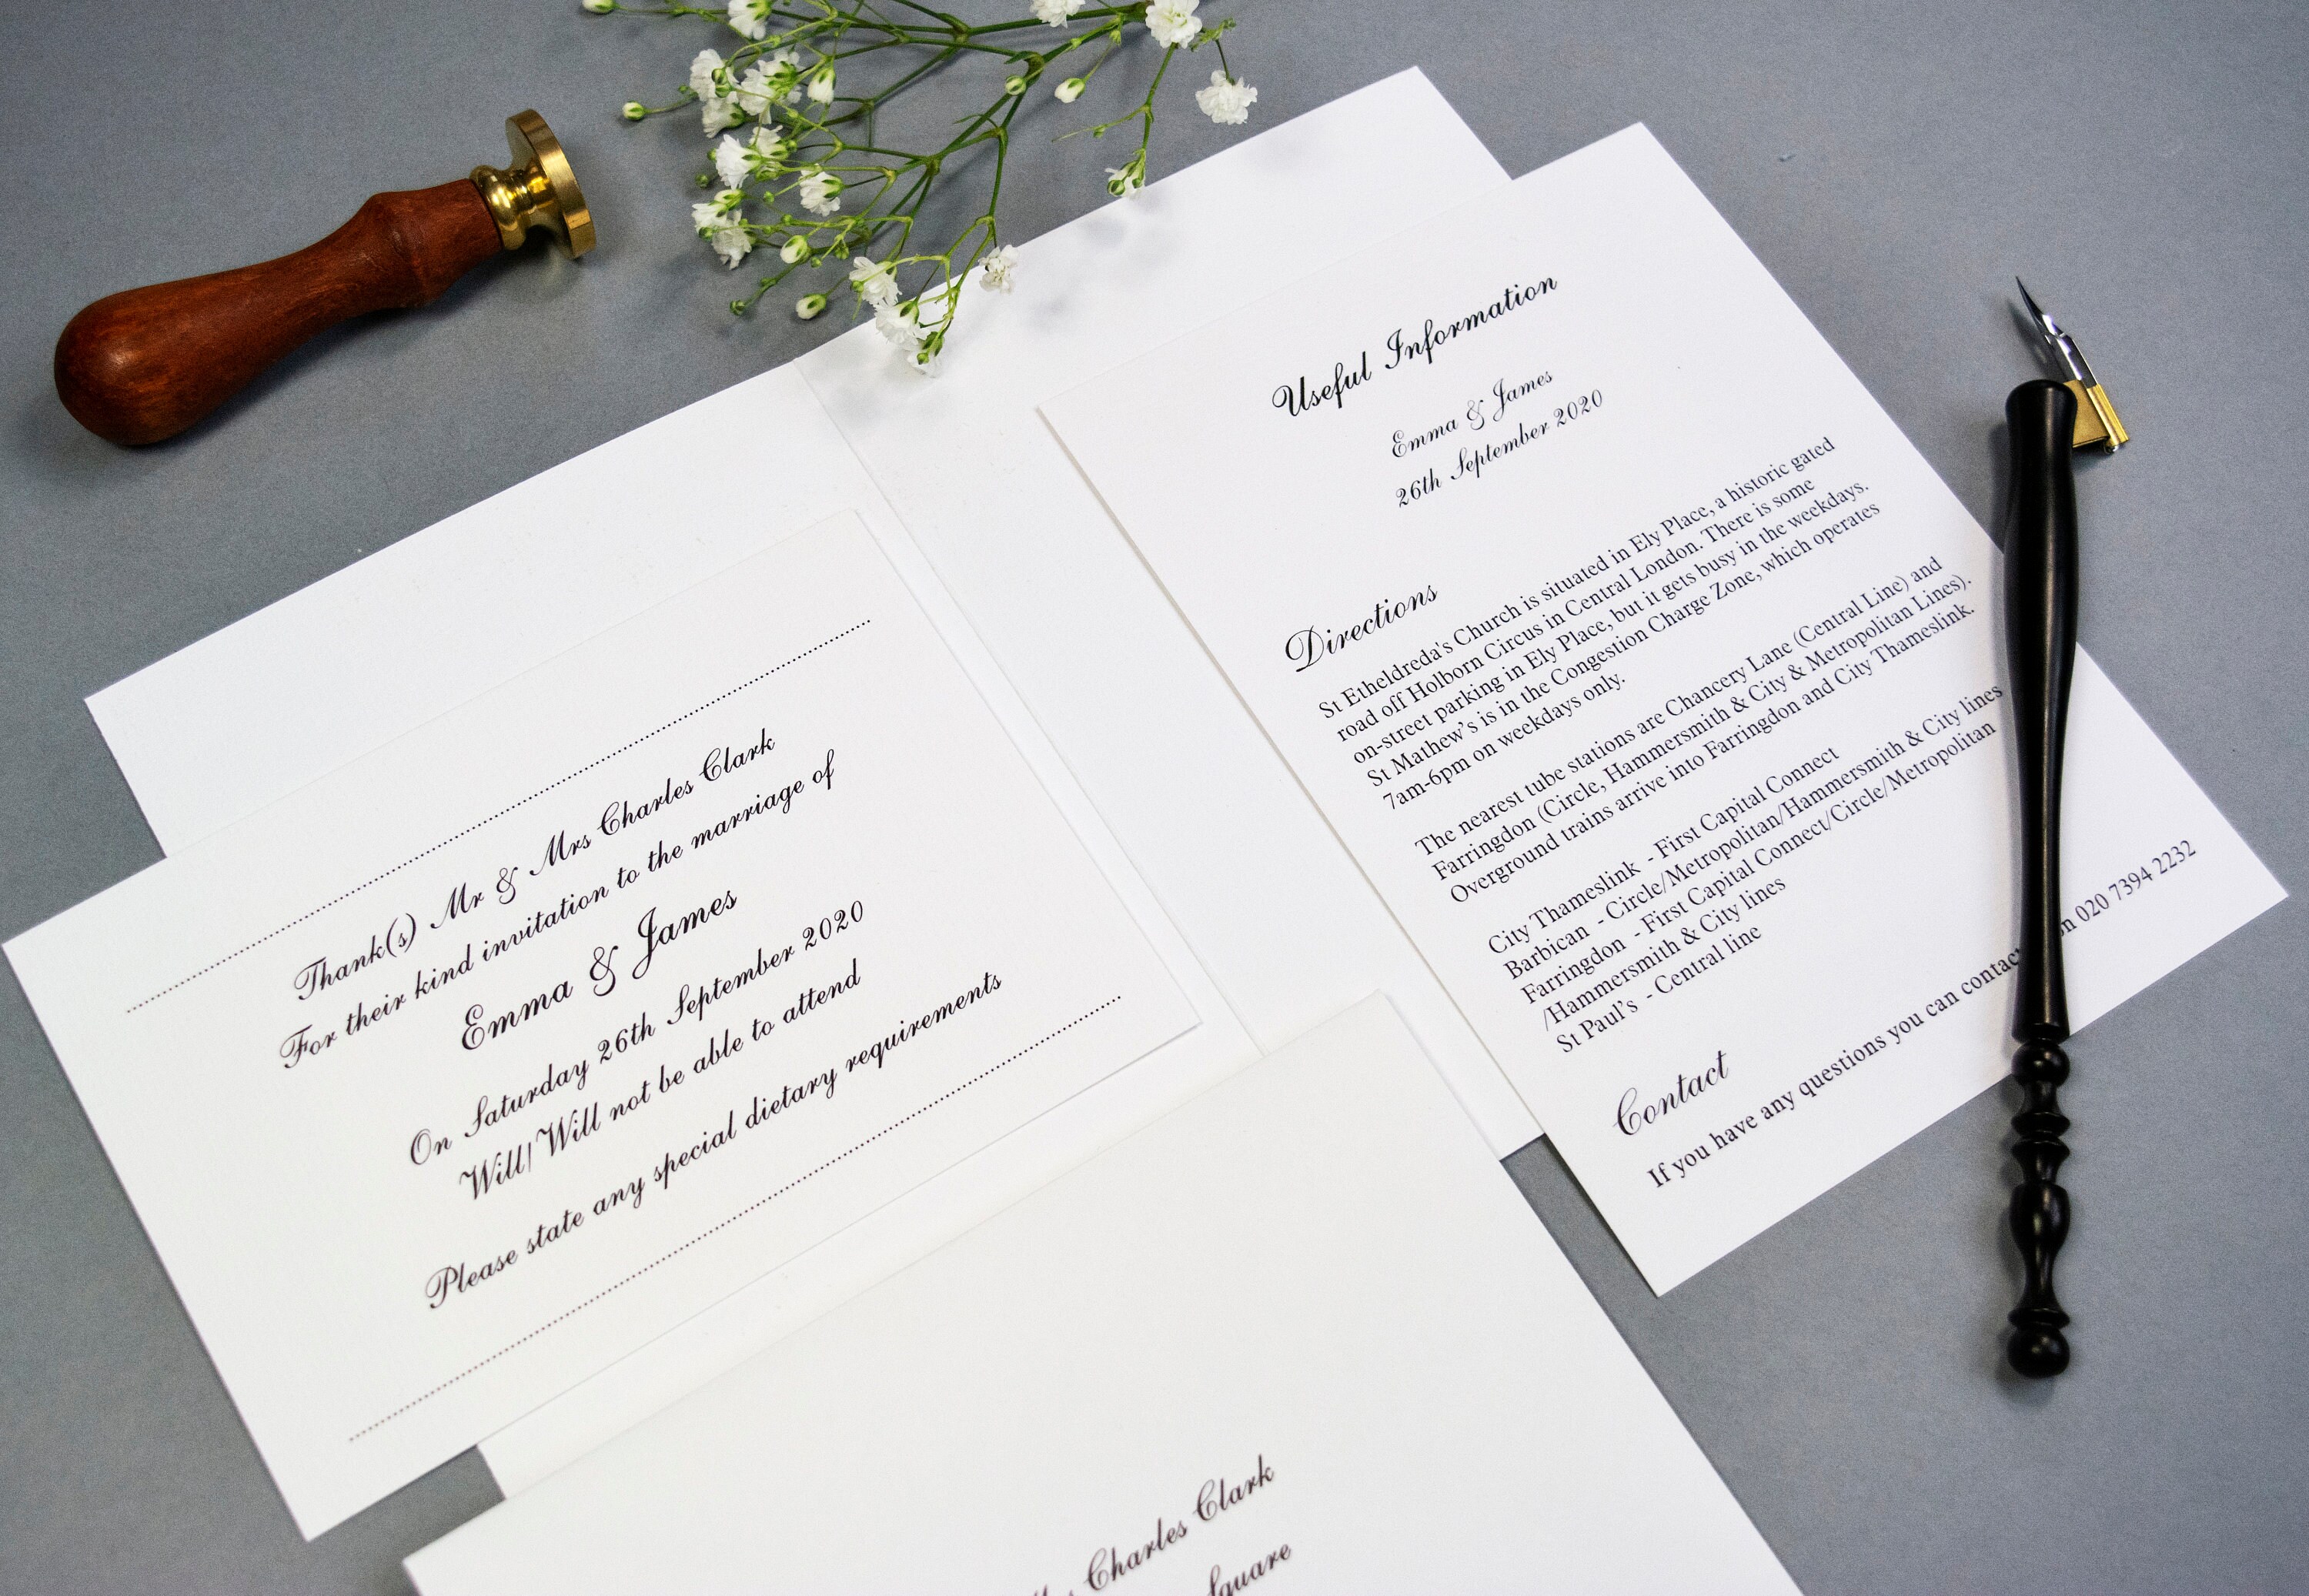 Thank(s) Mr & Mrs Charles Clark
For their kind invitation to the marriage of
Emma & James
On Saturday 26th September 2020
Will/Will not be able to attend
Please state any special dietary requirements
Useful Information
Emma & James
26th September 2020
Directions
St Etheldreda's Church is situated in Ely Place, a historic gated
road off Holborn Circus in Central London. There is some
on-street parking in Ely Place, but it gets busy in the weekdays.
St Mathew's is in the Congestion Charge Zone, which operates
7am-6pm on weekdays only.
The nearest tube stations are Chancery Lane (Central Line) and
Farringdon (Circle, Hammersmith & City & Metropolitan Lines).
Overground trains arrive into Farringdon and City Thameslink.
City Thameslink - First Capital Connect
Barbican - Circle/Metropolitan/Hammersmith & City lines
Farringdon - First Capital Connect/Circle/Metropolitan
/Hammersmith & City lines
St Paul's - Central line
Contact
If you have any questions you can contact 020 7394 2232
Charles Clark
Square